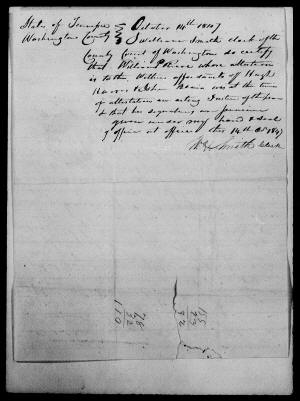 State of Tennessee October 14th 1847
Washington County I William Smith clerk of the
County Court of Washington do certify
that William Price whose attestation
is to the within affidavits of Hugh
Harris & John was at the time
of attestation an acting Justice of the peace
& that his signature is genuine
given under my hand & seal
of office at office this 14th Oct 1847
Smith Clerk
78
32
110
55
23
32